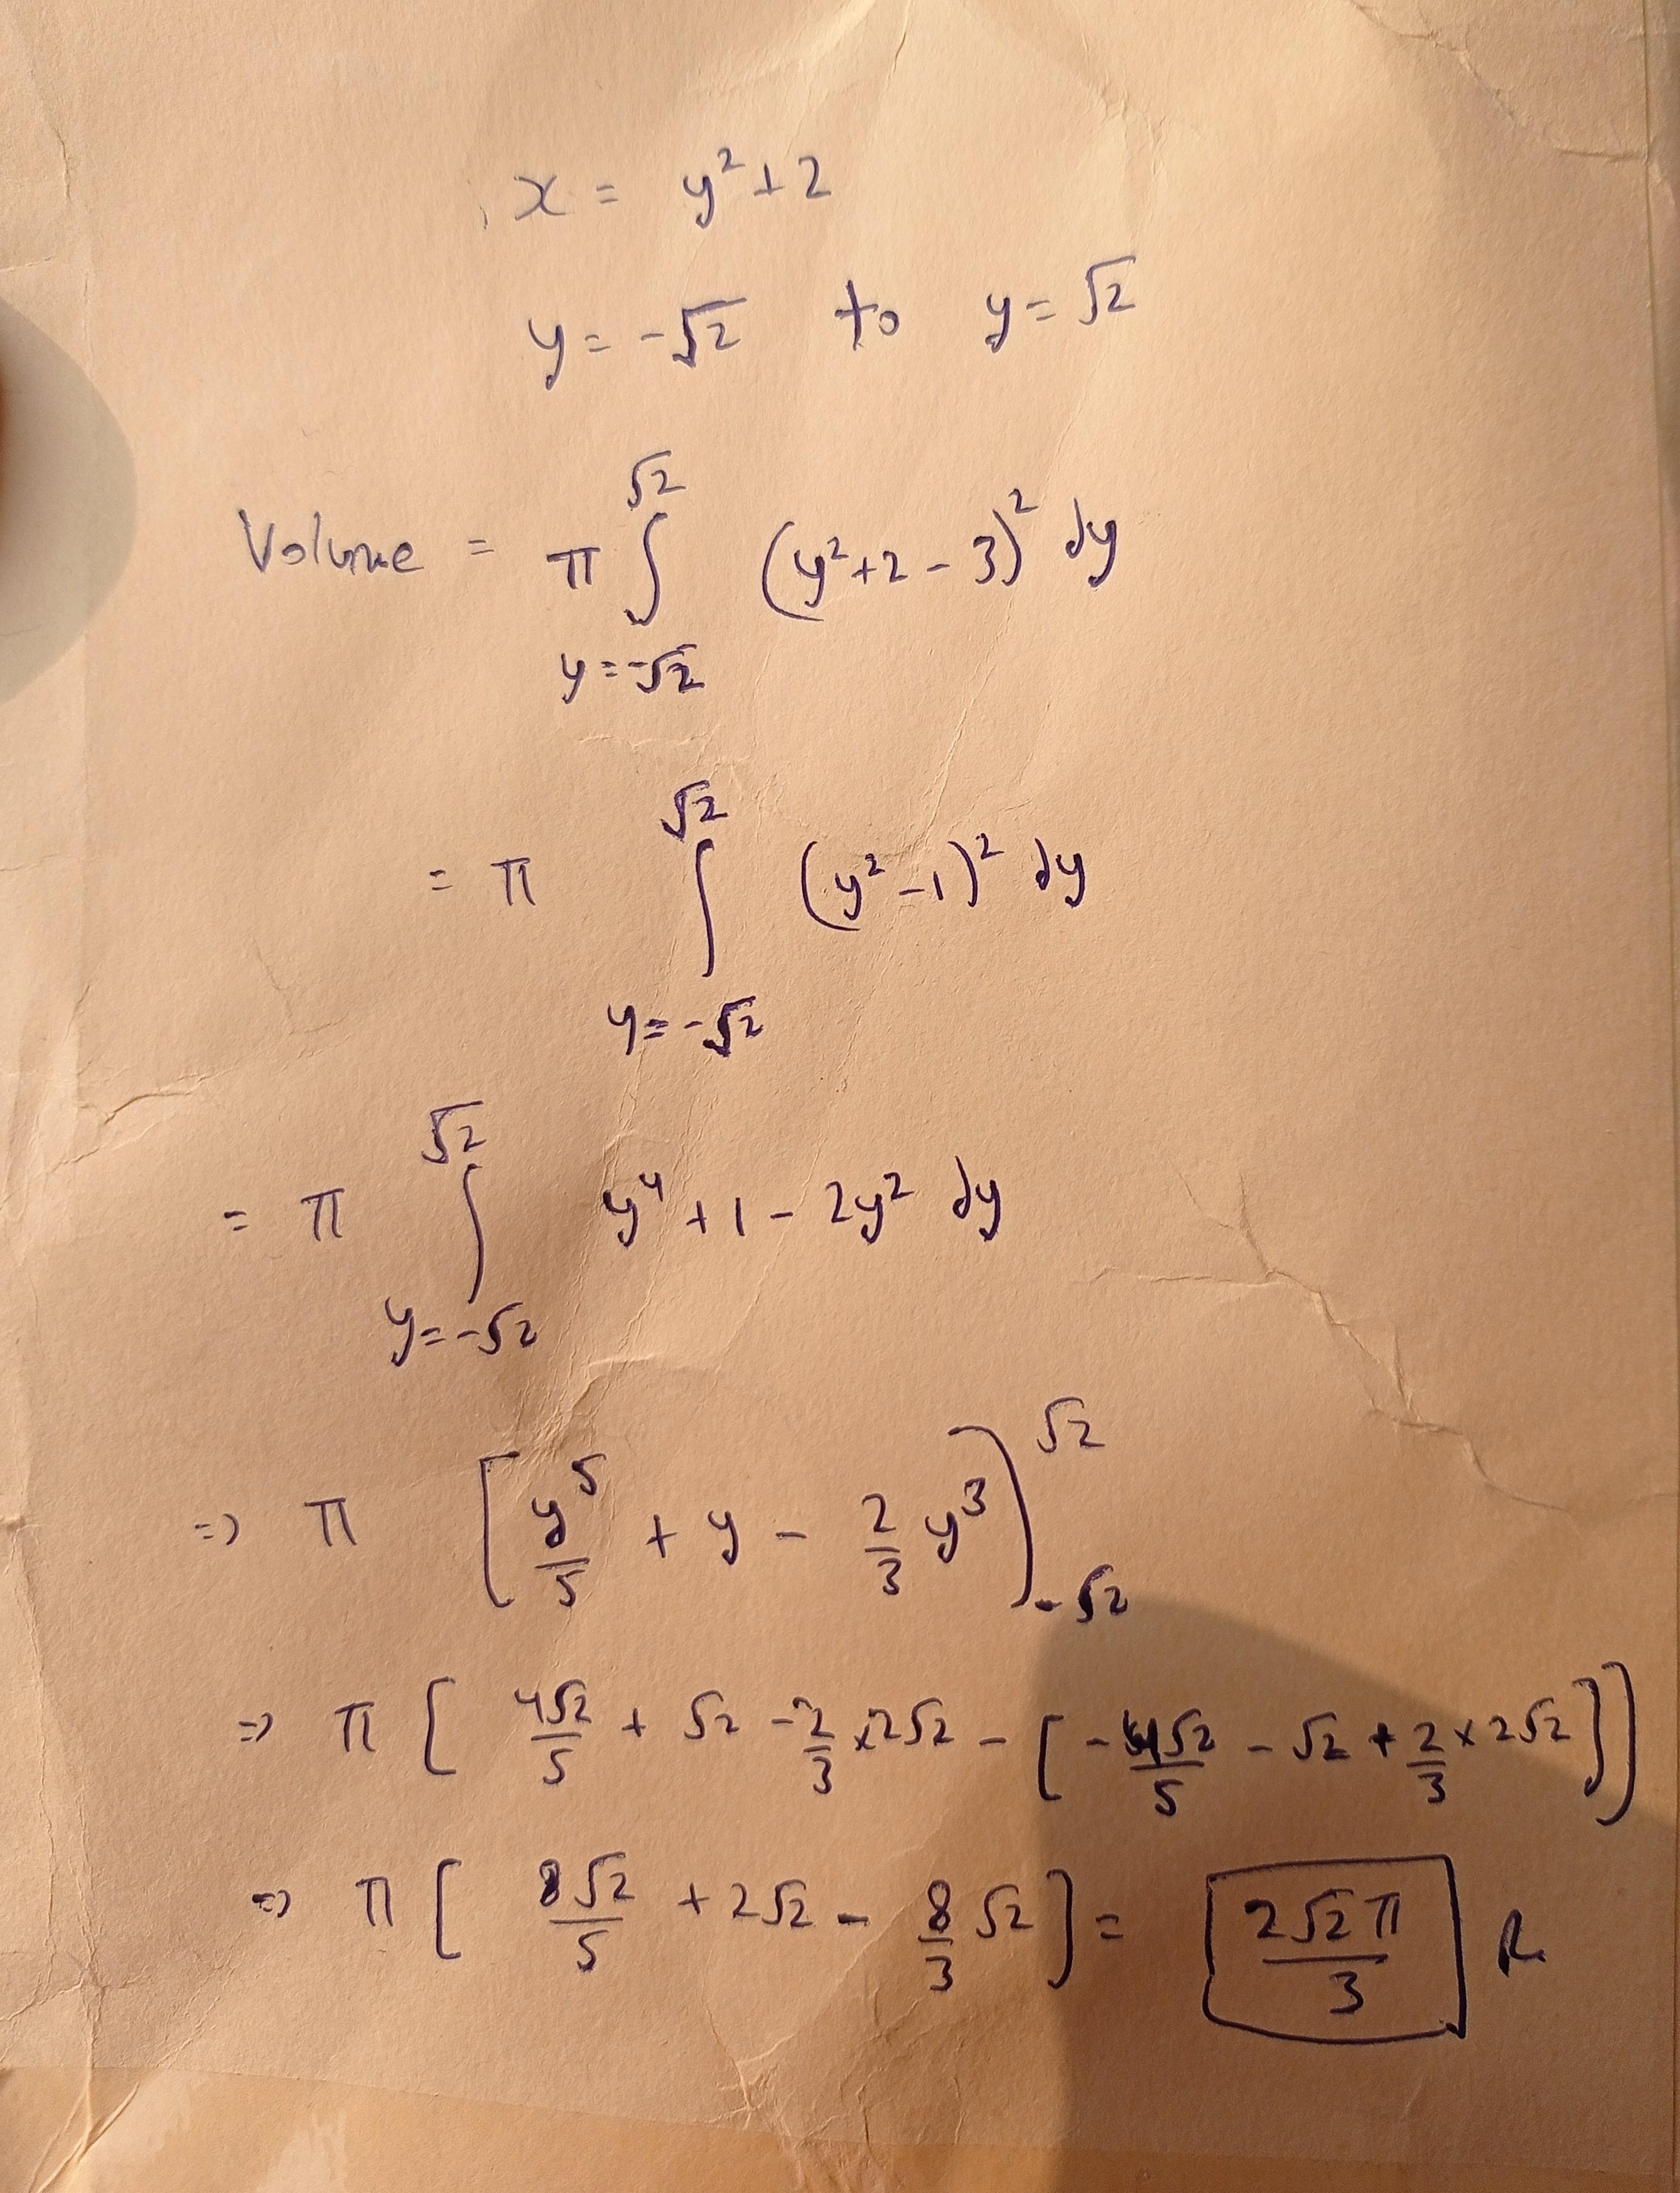 x = y² + 2
y = -√2 to y = √2
Volume = π ∫_{y=-√2}^{√2} (y² + 2 - 3)² dy
= π ∫_{y=-√2}^{√2} (y² - 1)² dy
= π ∫_{y=-√2}^{√2} y⁴ + 1 - 2y² dy
⇒ π [y⁵/5 + y - 2/3 y³]_{-√2}^{√2}
⇒ π [4√2/5 + √2 - 2/3 × 2√2 - [-4√2/5 - √2 + 2/3 × 2√2]]
⇒ π [8√2/5 + 2√2 - 8/3 √2] = 2√2π/3